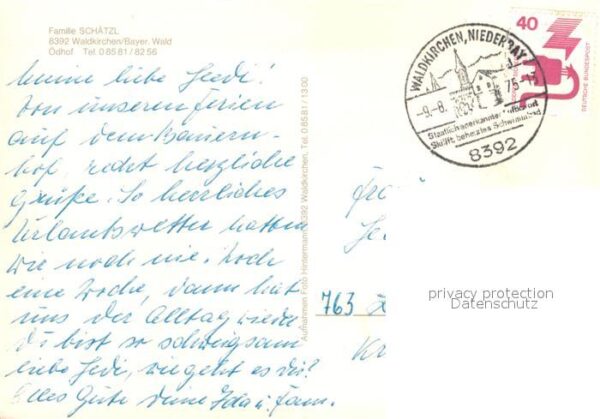 Familie SCHÄTZL
8392 Waldkirchen/Bayer. Wald
Ödhof Tel. 0 85 81 / 82 56
Meine liebe Hedi!
Von unseren Ferien
auf dem Bauern-
hof, recht herzliche
Grüße. So herrliches
Urlaubswetter hatten
wir noch nie. Noch
eine Woche, dann hat
uns der Alltag wieder
Du bist so schweigsam
liebe Hedi, wie geht es dir?
Alles Gute Deine Ida u. Fam.
Aufnahmen Foto Hintermann, 8392 Waldkirchen, Tel. 0 85 81 / 13 00
WALDKIRCHEN, NIEDERBAY
-9.-8. 75-15
Staatlich anerkannter Luftkurort
Skilift beheiztes Schwimmbad
8392
40
DEUTSCHE BUNDESPOST
763
privacy protection
Datenschutz